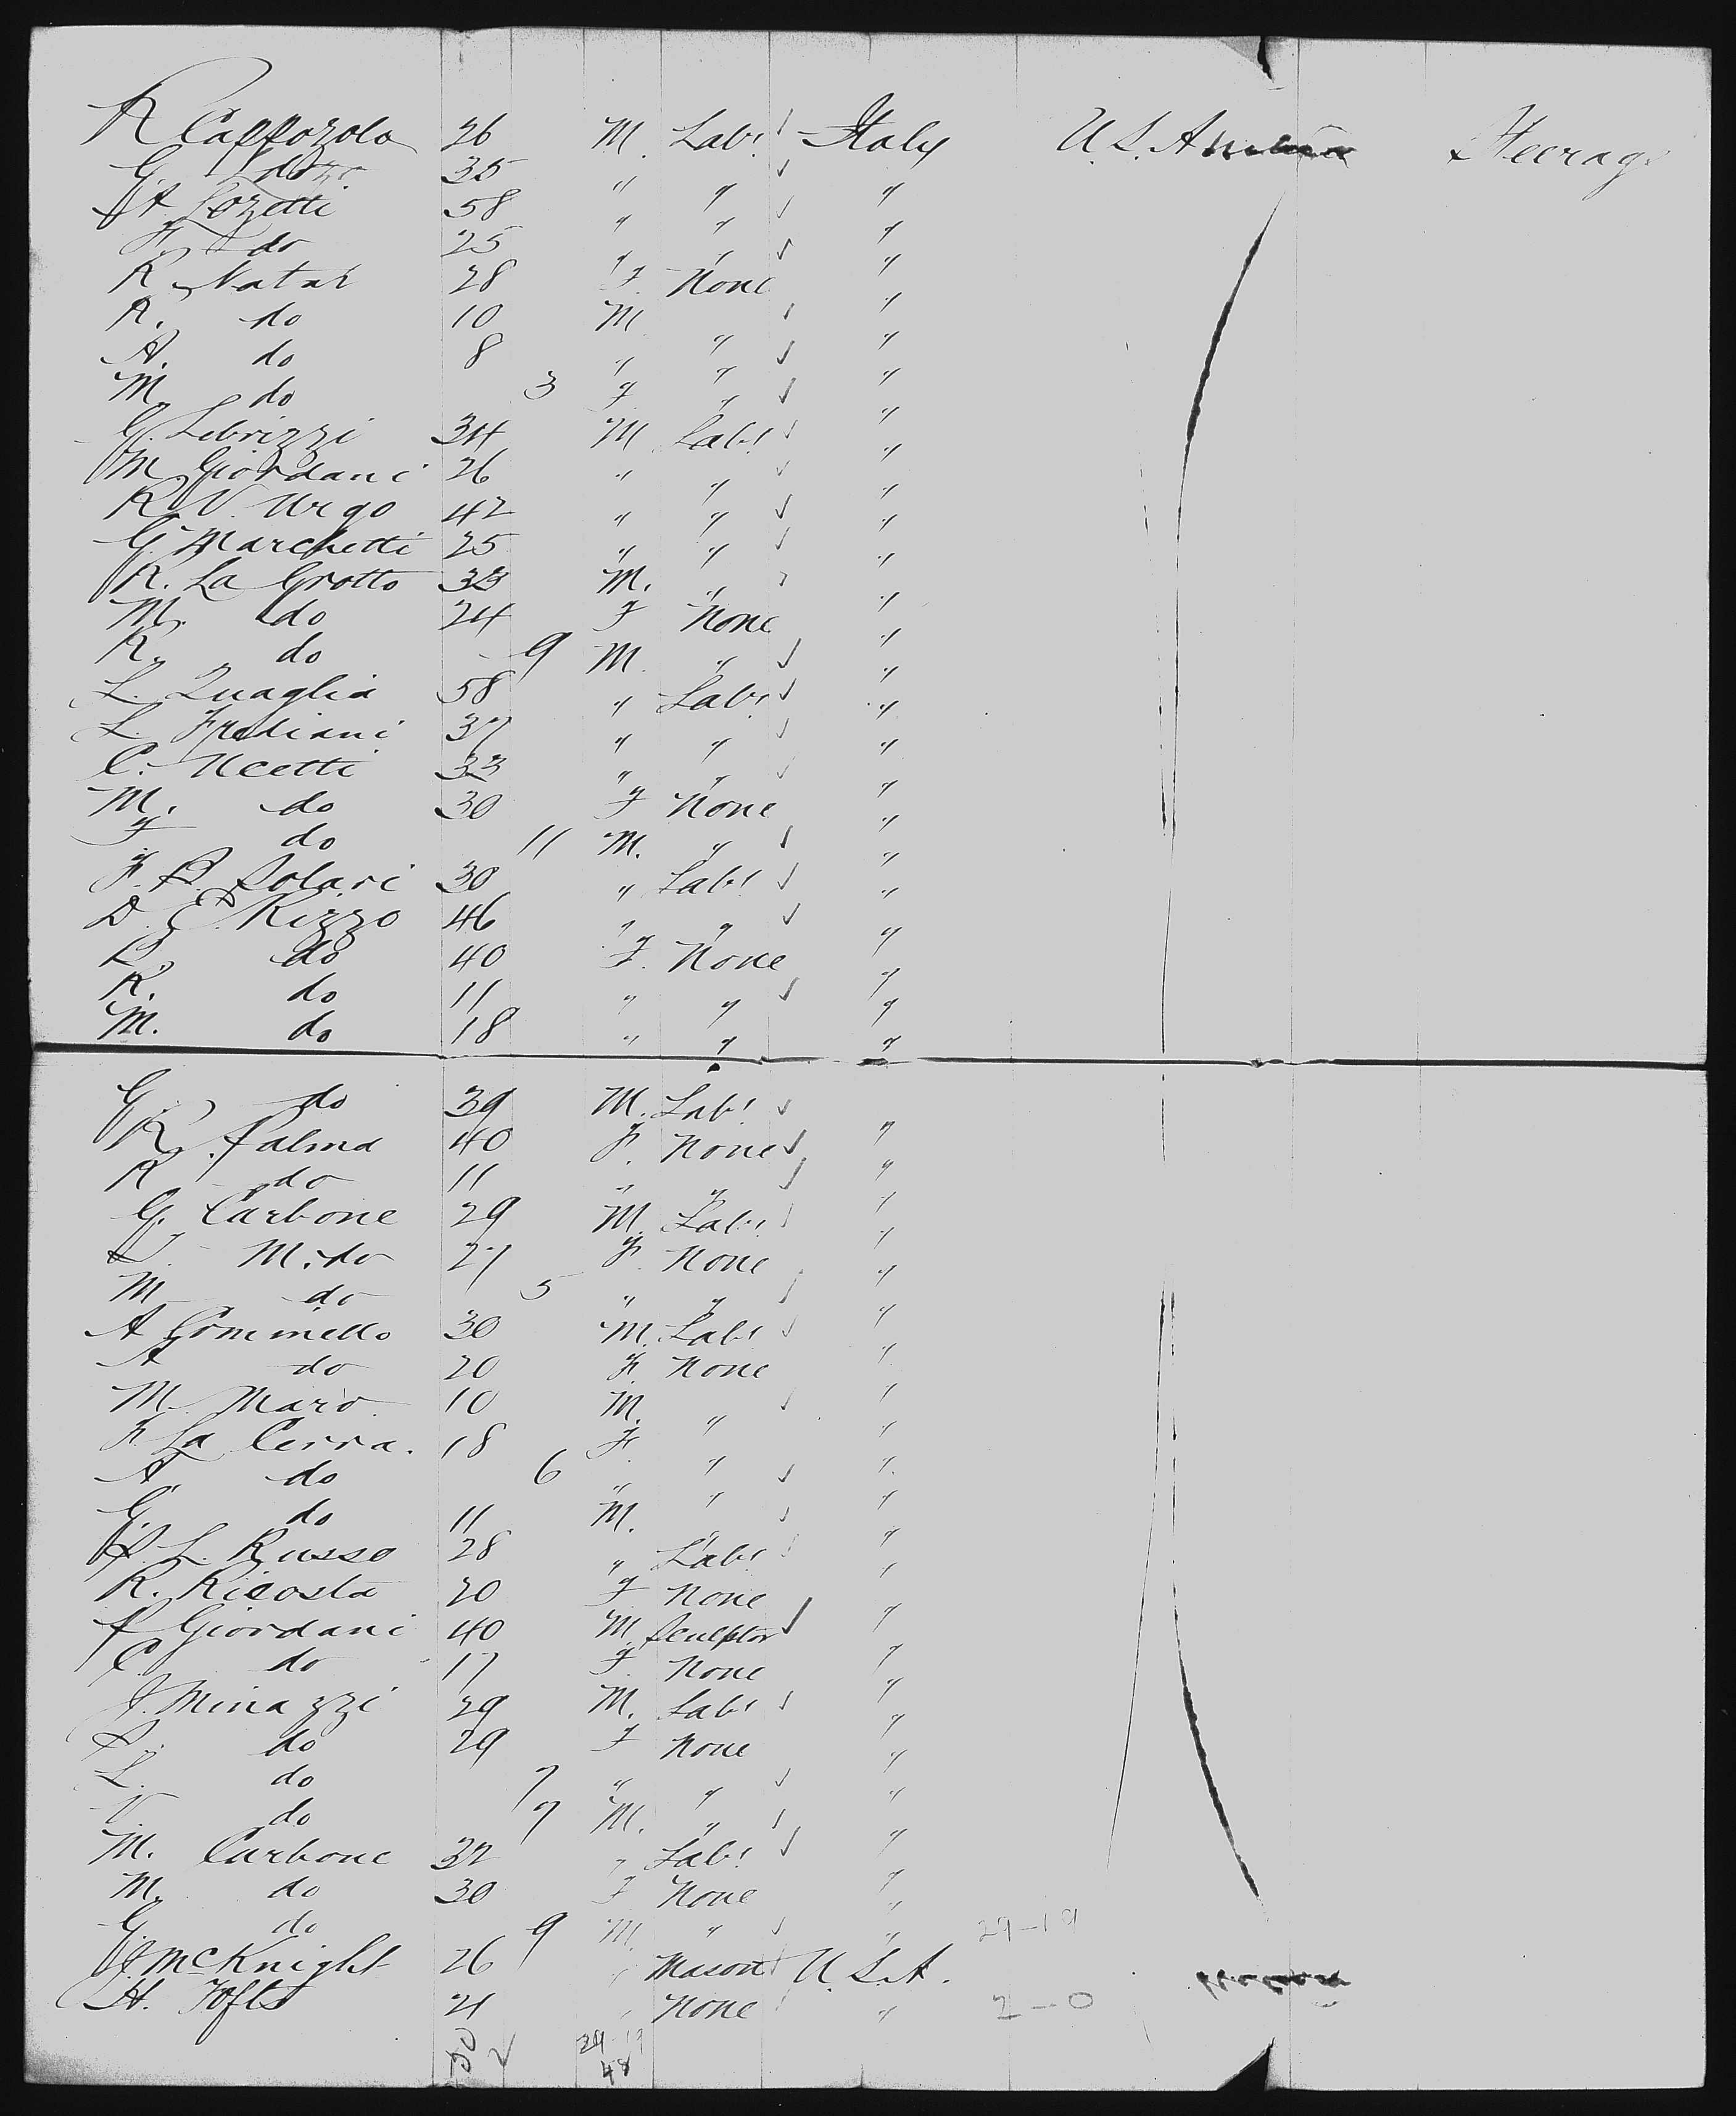 R Cappozolo 26 M. Labr Italy U.S. America Steerage
G. do 35 " " "
A. Lozetti 58 " " "
F. do 25 " " "
R Natal 28 F. None "
R. do 10 M "
A. do 8 " " "
M. do 3 F " "
G. Lebrizzi 34 M Labr "
M Giordani 26 " " "
R V. Urgo 42 " " "
G. Marchetti 25 " " "
R. La Grotto 33 M. " "
M. do 24 F None "
R. do 9 M. " "
L. Quaglia 58 " Labr "
L. Frediani 37 " " "
C. Ucetti 33 " " "
M. do 30 F None "
F do 11 M. " "
F. B. Solari 30 " Labr "
D. E. Rizzo 46 " " "
P. do 40 F. None "
R. do 11 " " "
M. do 18 " " "
G. do 39 M. Labr "
R. Palma 40 F. None "
R do 11 " " "
G. Carbone 29 M. Labr "
L. M. do 27 F. None "
M do 5 " " "
A Gominello 30 M. Labr "
A do 20 F. None "
M. Maro 10 M. " "
F. La Cerra. 18 F. " "
A. do 6 " " "
G. do 11 M. " "
P. L. Russo 28 " Labr "
R. Ricosta 20 F None "
P Giordani 40 M. Sculptor "
C. do 17 F. None "
J. Minazzi 29 M. Labr "
P. do 29 F None "
L. do 7 " " "
V. do 7 M. " "
M. Carbone 32 " Labr "
M. do 30 F None "
G. do 9 M. " " 29-19
J. McKnight 26 " Mason U.S.A.
H. Tofts 21 " None " 2-0
50 2 29 19
48